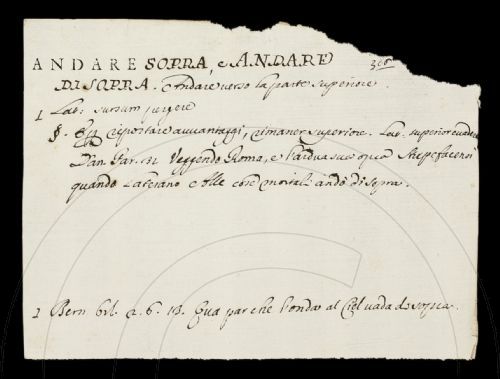 ANDARE SOPRA, e ANDARE
DI SOPRA. Andare verso la parte superiore
1 Lat: sursum pergere
§. Riportare avvantaggi, rimaner superiore. Lat: superior evadere
Dan. Par. 31 Veggendo Roma, e l'ardua sua opra Stupefacensi
quando Laterano e alle cose mortali andò di sopra.
1 Bern Orl. 2. 6. 13. Qua par che l'onda al Ciel vada di sopra.